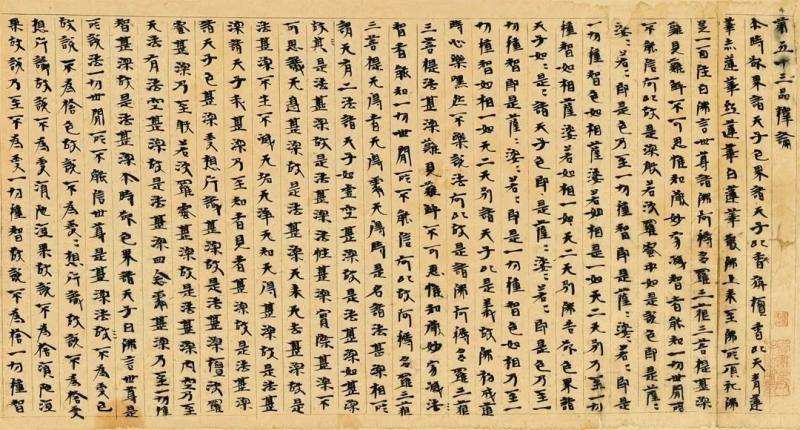 第五十三品釋論
尒時欲界諸天子色界諸天子以香擣香以天青蓮
華赤蓮華紅蓮華白蓮華散佛上來至佛所頂礼佛
足一面住白佛言世尊諸佛阿耨多羅三藐三菩提甚深
難見難解不可思惟知微妙寂滅智者能知一切世間所
不能信何以故深般若波羅蜜中如是說色即是薩:
婆:若:即是色乃至一切種智即是薩:婆:若:即是
一切種智色如相薩婆若如相是一如无二无別乃至一切
種智如相薩婆若如相一如无二无別佛告欲色界諸
天子如是:諸天子色即是薩:婆:若:即是色乃至一
切種智即是薩:婆:若:即是一切種智色如相乃至一切
種智如相一如无二无別諸天子以是義故佛初成道
時心樂嘿然不樂說法何以故是諸佛阿耨多羅三藐
三菩提法甚深難見難解不可思惟知微妙寂滅法
智者能知一切世間所不能信何以故阿耨多羅三藐
三菩提无得者无得處无得時是名諸法甚深相所
謂无有二法諸天子如虛空甚深故是法甚深如甚深
故是法甚深法性甚深實際甚深不
可思議无邊甚深故是法甚深无來无去甚深故是法甚
深不生不滅无垢无淨无知无得甚深故是法甚深
諸天子我甚深乃至知者見者甚深故是法甚深
諸天子色甚深受想行識甚深故是法甚深檀波羅
蜜甚深乃至般若波羅蜜甚深故是法甚深內空乃至
无法有法空甚深故是法甚深四念處甚深乃至一切種
智甚深故是法甚深尒時欲色界諸天子白佛言世尊是
所說法一切世間所不能信世尊是甚深法不為受色
故說不為捨色故說不為受:想行識故說不為捨受
想行識故說不為受須陀洹果故說不為捨須陀洹
果故說乃至不為受一切種智故說不為捨一切種智